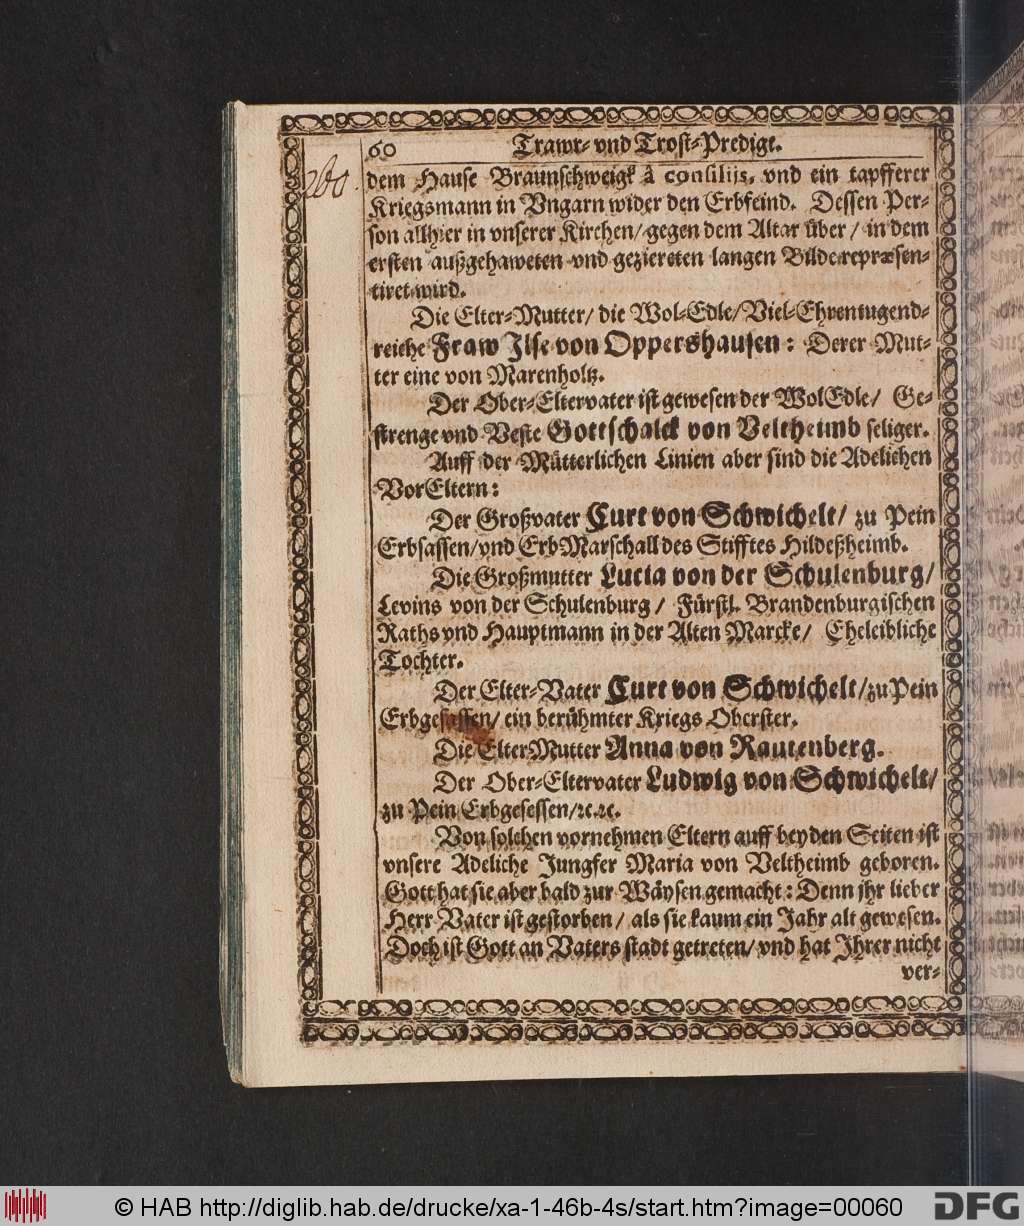 60 Trawr- vnd Trost-Predigt.
dem Hause Braunschweigk â consilijs, vnd ein tapfferer
Kriegsmann in Vngarn wider den Erbfeind. Dessen Per-
son allhier in vnserer Kirchen/ gegen dem Altar über/ in dem
ersten außgehaweten vnd gezierten langen Bilde repræsen-
tiret wird.
Die Elter-Mutter/ die Wol-Edle/ Viel-Ehrentugend-
reiche Fraw Ilse von Oppershausen: Derer Mut-
ter eine von Marenholtz.
Der Ober-Eltervater ist gewesen der WolEdle/ Ge-
strenge vnd Veste Gottschalck von Veltheimb seliger.
Auff der Mütterlichen Linien aber sind die Adelichen
VorEltern:
Der Großvater Curt von Schwichelt/ zu Pein
Erbsassen/ vnd ErbMarschall des Stifftes Hildeßheimb.
Die Großmutter Lucia von der Schulenburg/
Levins von der Schulenburg/ Fürstl. Brandenburgischen
Raths vnd Hauptmann in der Alten Marcke/ Eheleibliche
Tochter.
Der Elter-Vater Curt von Schwichelt/ zu Pein
Erbgesassen/ ein berühmter Kriegs Oberster.
Die ElterMutter Anna von Rautenberg.
Der Ober-Eltervater Ludwig von Schwichelt/
zu Pein Erbgesessen/ ꝛc. ꝛc.
Von solchen vornehmen Eltern auff beyden Seiten ist
vnsere Adeliche Jungfer Maria von Veltheimb geboren.
Gott hat sie aber bald zur Wäysen gemacht: Denn jhr lieber
Herr Vater ist gestorben/ als sie kaum ein Jahr alt gewesen.
Doch ist Gott an Vaters stadt getreten/ vnd hat Jhrer nicht
ver-
© HAB http://diglib.hab.de/drucke/xa-1-46b-4s/start.htm?image=00060
DFG